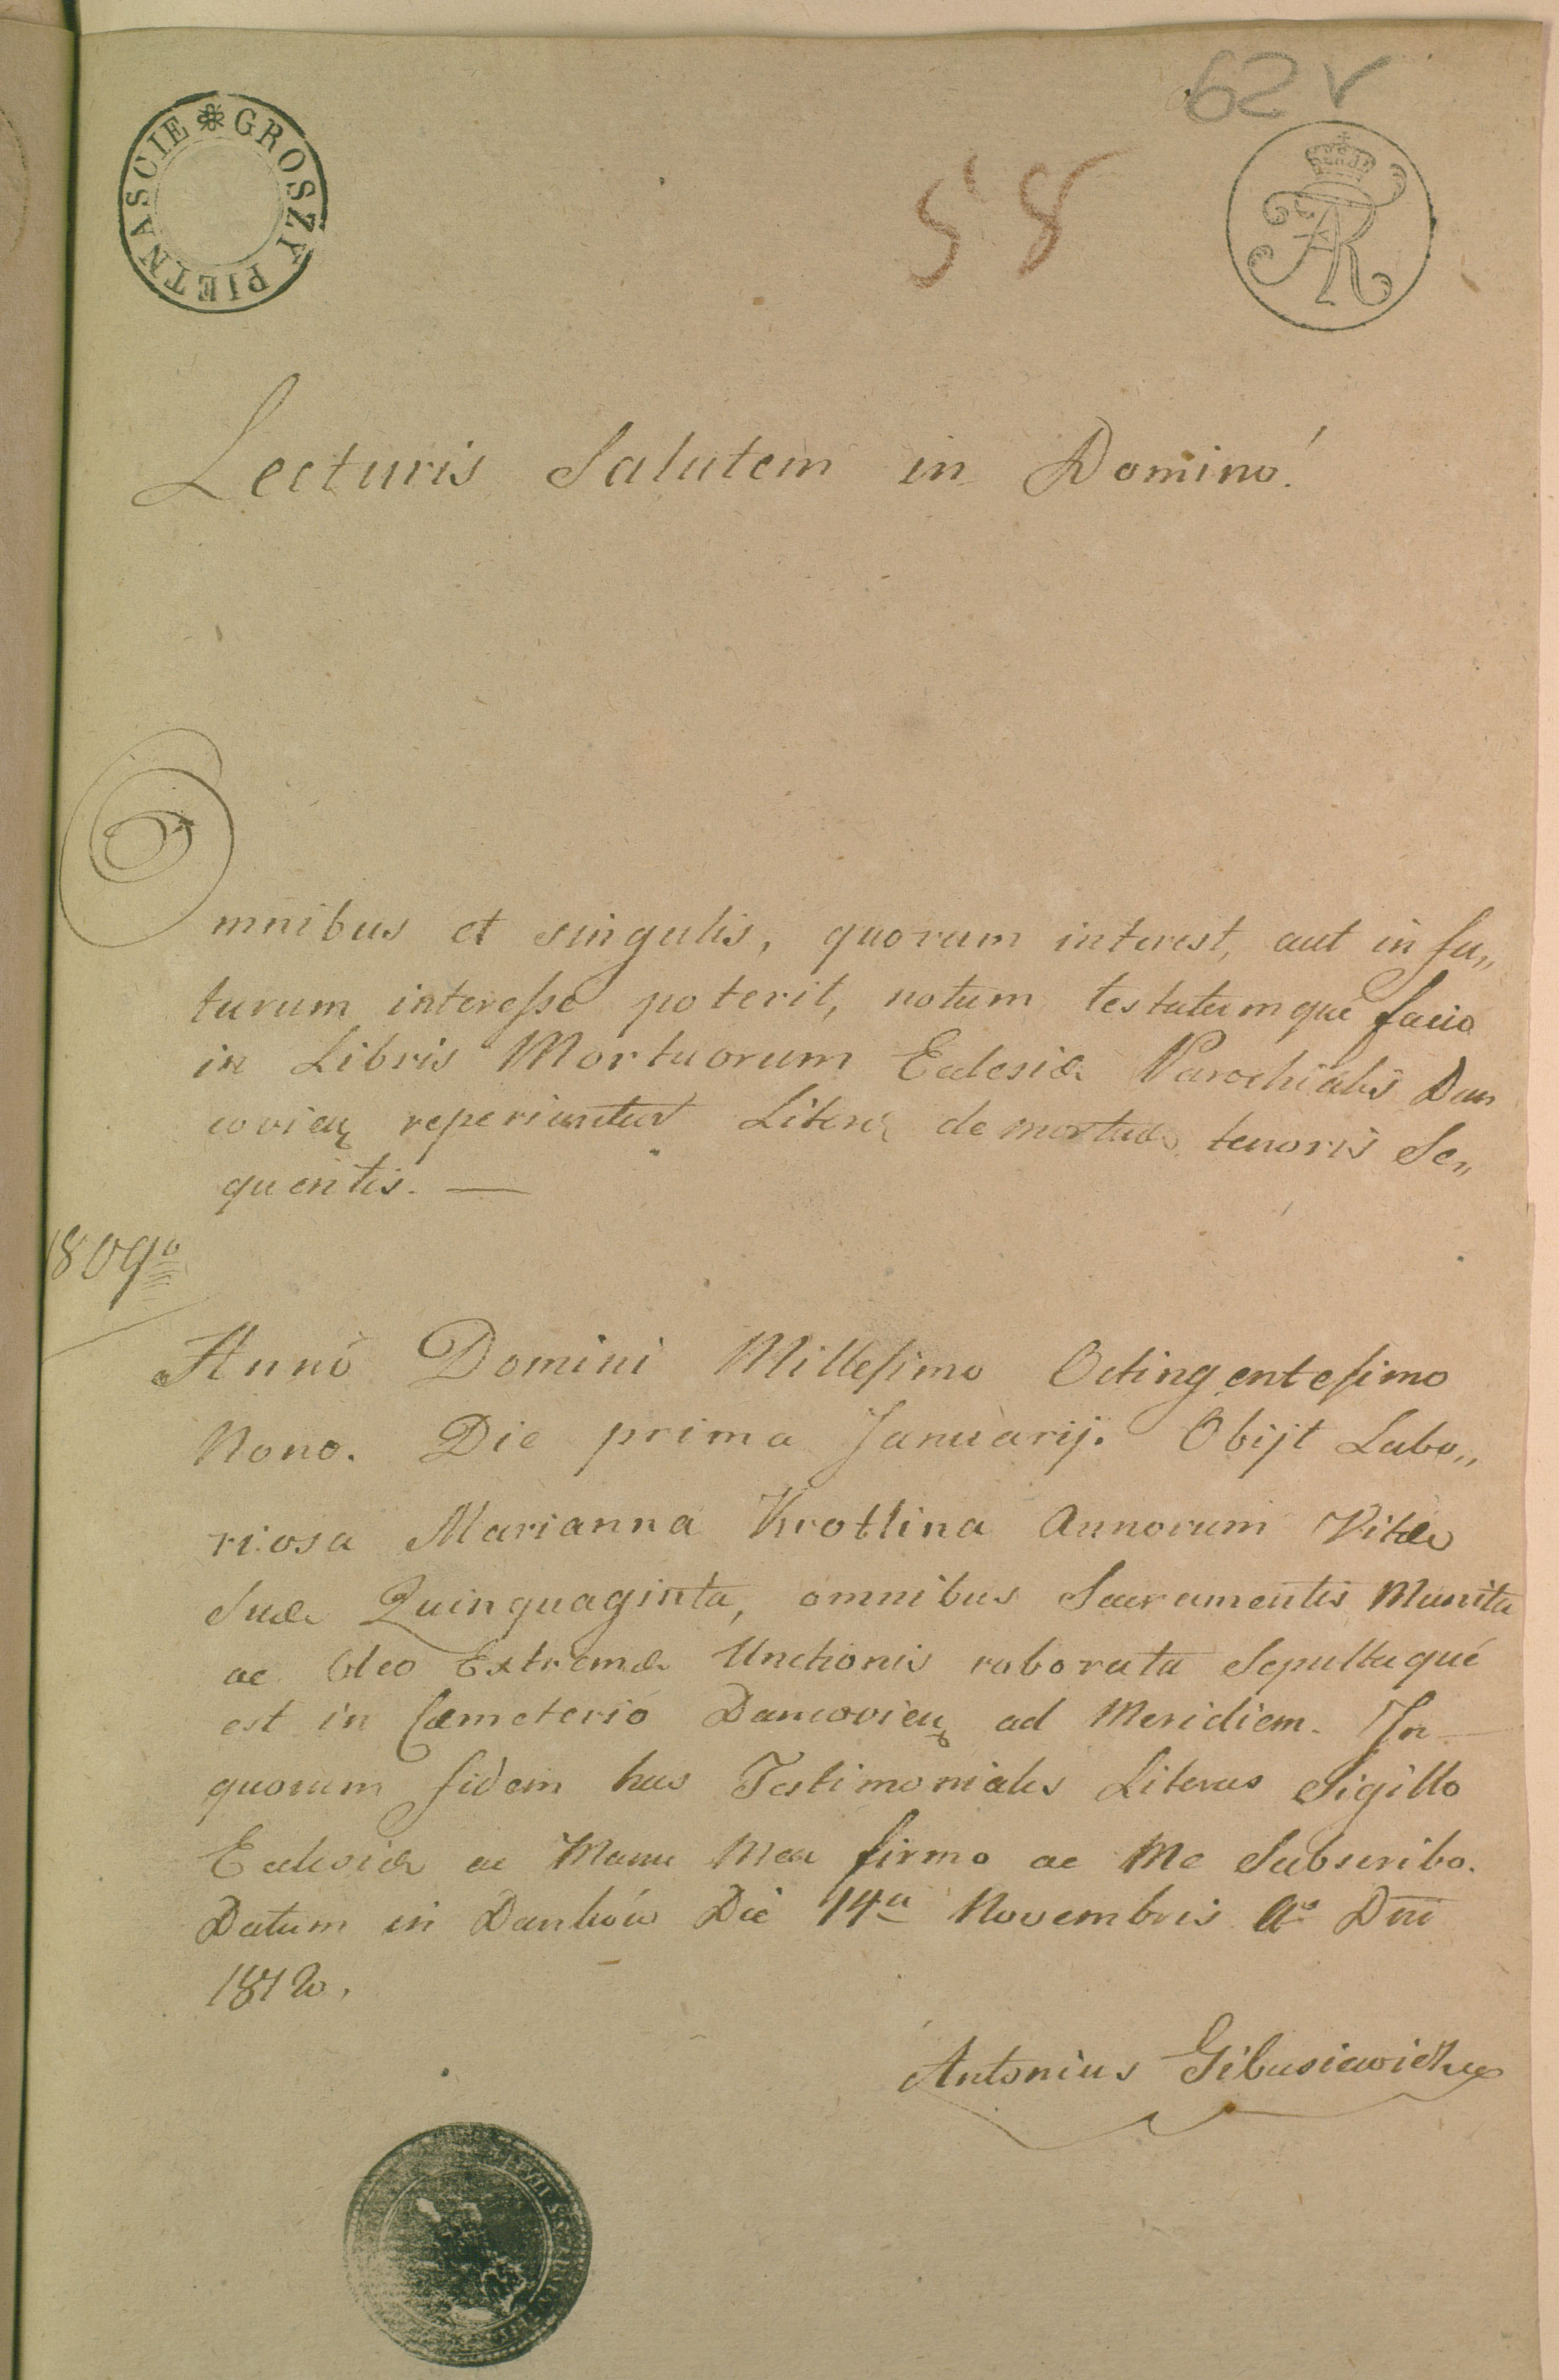 62 v
GROSZY PIETNASCIE
58
AR
Lecturis Salutem in Dominó!
Omnibus et singulis, quorum interest, aut in fu„
turum interesse poterit, notum testatumqué facio
in Libris Mortuorum Eclesiæ Parochialis Dan
coviens reperiuntur Literæ de mortuis tenoris Se„
quentis. —
1809o
Annó Domini Millesimo Octingentesimo
Nono. Die prima Januarij. Obijt Labo„
riosa Marianna Krotlina Annorum Vitæ
Suæ Quinquaginta, omnibus Sacramentis Munita
ac Oleo Extremæ Unctionis roborata Sepultaqué
est in Cæmeterió Dancoviens ad Meridiem. In
quorum fidem has Testimoniales Literas Sigillo
Eclesiæ ac Manu Mea firmo ac Me Subscribo.
Datum in Danków Die 14a Novembris Ao Dni
1812o.
Antonius Gibasiewicz